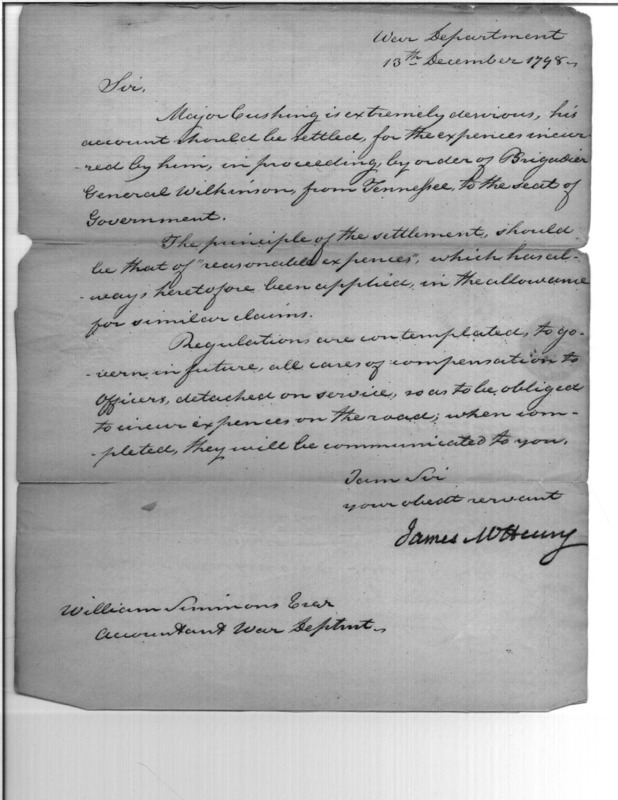 War Department
13th December 1798
Sir,
Major Cushing is extremely desirous, his
account should be settled, for the expences incur-
-red by him, in proceeding, by order of Brigadier
General Wilkinson, from Tennessee, to the seat of
Government.
The principle of the settlement, should
be that of "reasonable expences", which has al-
-ways heretofore been applied, in the allowance
for similar claims.
Regulations are contemplated, to go-
-vern in future, all cases of compensation to
Officers, detached on service, so as to be obliged
to incur expences on the road; when com-
-pleted, they will be communicated to you.
I am Sir
your obedt servant
James McHenry
William Simmons Esqr
Accountant War Deptmt